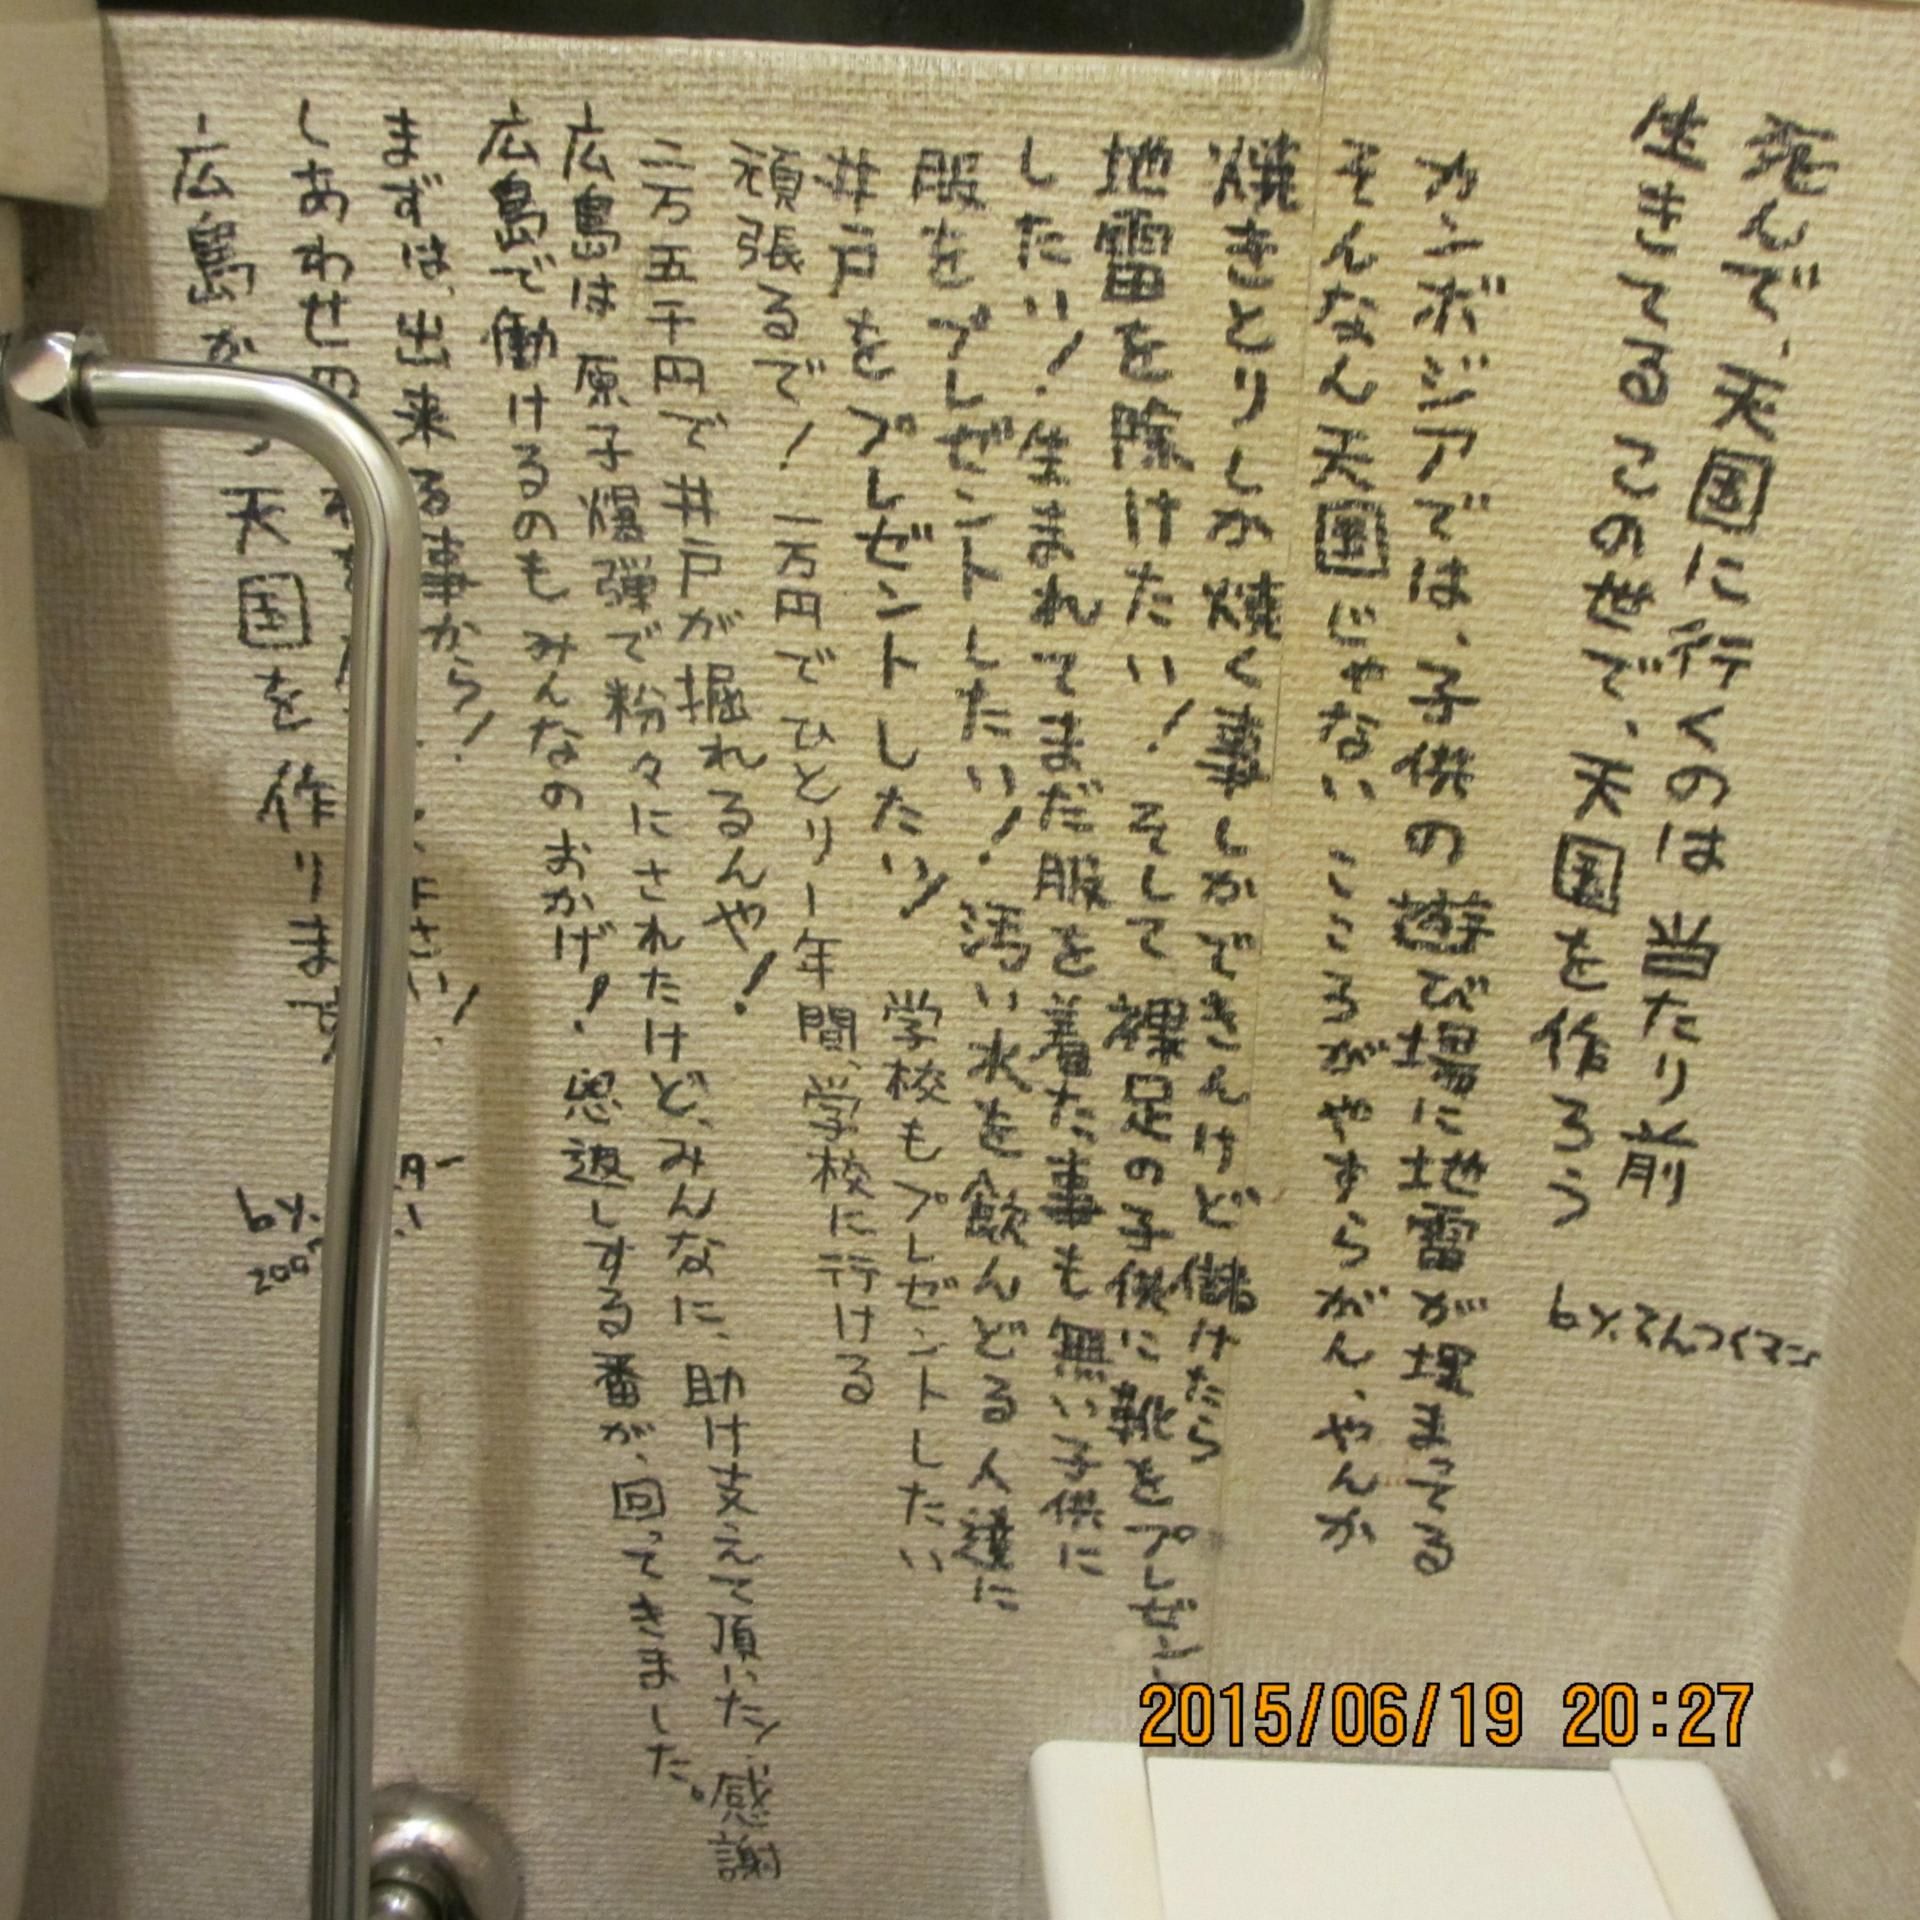 死んで、天国に行くのは当たり前
生きてるこの世で、天国を作ろう
by.てんつくマン
カンボジアでは、子供の遊び場に地雷が埋まってる
そんなん天国じゃない こころがやすらがん、やんか
焼きとりしか焼く事しかできんけど 儲けたら
地雷を除けたい！そして 裸足の子供に靴をプレゼント
したい！生まれてまだ服を着た事も無い子供に
服をプレゼントしたい！汚い水を飲んどる人達に
井戸をプレゼントしたい！ 学校もプレゼントしたい
頑張るで！ 一万円でひとり一年間、学校に行ける
二万五千円で井戸が掘れるんや！
広島は原子爆弾で粉々にされたけど、みんなに、助け支えて頂いた！感謝
広島で働けるのもみんなのおかげ！恩返しする番が、回ってきました。
まずは、出来る事から！
しあわせの
広島から天国を作ります
by.
2015/06/19 20:27